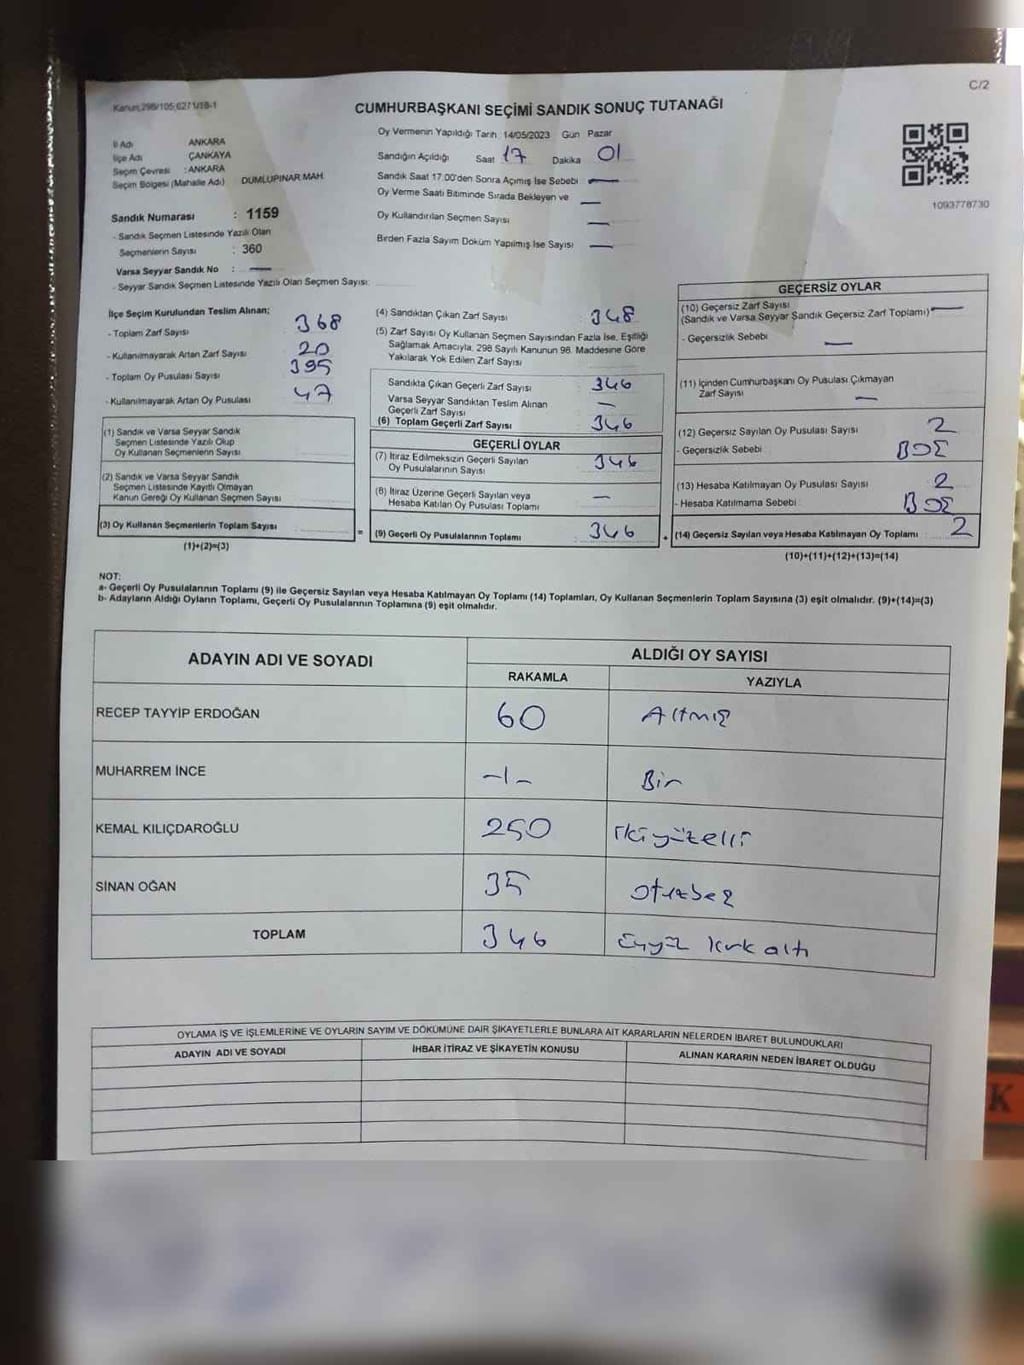 C/2
Kanun;298/105;6271/18-1
CUMHURBAŞKANI SEÇİMİ SANDIK SONUÇ TUTANAĞI
İl Adı ANKARA
İlçe Adı ÇANKAYA
Seçim Çevresi : ANKARA
Seçim Bölgesi (Mahalle Adı) DUMLUPINAR MAH.
Sandık Numarası : 1159
- Sandık Seçmen Listesinde Yazılı Olan
Seçmenlerin Sayısı : 360
Varsa Seyyar Sandık No : —
- Seyyar Sandık Seçmen Listesinde Yazılı Olan Seçmen Sayısı:
Oy Vermenin Yapıldığı Tarih 14/05/2023 Gün Pazar
Sandığın Açıldığı Saat 17 Dakika 01
Sandık Saat 17:00'den Sonra Açımış İse Sebebi —
Oy Verme Saati Bitiminde Sırada Bekleyen ve —
Oy Kullandırılan Seçmen Sayısı —
Birden Fazla Sayım Döküm Yapılmış İse Sayısı —
1093778730
İlçe Seçim Kurulundan Teslim Alınan;
- Toplam Zarf Sayısı 368
- Kullanılmayarak Artan Zarf Sayısı 20
- Toplam Oy Pusulası Sayısı 395
- Kullanılmayarak Artan Oy Pusulası 47
(1) Sandık ve Varsa Seyyar Sandık
Seçmen Listesinde Yazılı Olup
Oy Kullanan Seçmenlerin Sayısı
(2) Sandık ve Varsa Seyyar Sandık
Seçmen Listesinde Kayıtlı Olmayan
Kanun Gereği Oy Kullanan Seçmen Sayısı
(3) Oy Kullanan Seçmenlerin Toplam Sayısı
(1)+(2)=(3)
(4) Sandıktan Çıkan Zarf Sayısı 348
(5) Zarf Sayısı Oy Kullanan Seçmen Sayısından Fazla İse, Eşitliği
Sağlamak Amacıyla, 298 Sayılı Kanunun 98. Maddesine Göre
Yakılarak Yok Edilen Zarf Sayısı
Sandıkta Çıkan Geçerli Zarf Sayısı 346
Varsa Seyyar Sandıktan Teslim Alınan
Geçerli Zarf Sayısı —
(6) Toplam Geçerli Zarf Sayısı 346
GEÇERLİ OYLAR
(7) İtiraz Edilmeksizin Geçerli Sayılan
Oy Pusulalarının Sayısı 346
(8) İtiraz Üzerine Geçerli Sayılan veya
Hesaba Katılan Oy Pusulası Toplamı —
= (9) Geçerli Oy Pusulalarının Toplamı 346
GEÇERSİZ OYLAR
(10) Geçersiz Zarf Sayısı
(Sandık ve Varsa Seyyar Sandık Geçersiz Zarf Toplamı) —
- Geçersizlik Sebebi —
(11) İçinden Cumhurbaşkanı Oy Pusulası Çıkmayan
Zarf Sayısı —
(12) Geçersiz Sayılan Oy Pusulası Sayısı 2
- Geçersizlik Sebebi BOŞ
(13) Hesaba Katılmayan Oy Pusulası Sayısı 2
- Hesaba Katılmama Sebebi BOŞ
+ (14) Geçersiz Sayılan veya Hesaba Katılmayan Oy Toplamı 2
(10)+(11)+(12)+(13)=(14)
NOT:
a- Geçerli Oy Pusulalarının Toplamı (9) ile Geçersiz Sayılan veya Hesaba Katılmayan Oy Toplamı (14) Toplamları, Oy Kullanan Seçmenlerin Toplam Sayısına (3) eşit olmalıdır. (9)+(14)=(3)
b- Adayların Aldığı Oyların Toplamı, Geçerli Oy Pusulalarının Toplamına (9) eşit olmalıdır.
ADAYIN ADI VE SOYADI ALDIĞI OY SAYISI
RAKAMLA YAZIYLA
RECEP TAYYİP ERDOĞAN 60 Altmış
MUHARREM İNCE -1- Bir
KEMAL KILIÇDAROĞLU 250 ikiyüzelli
SİNAN OĞAN 35 otuzbeş
TOPLAM 346 Üçyüz kırk altı
OYLAMA İŞ VE İŞLEMLERİNE VE OYLARIN SAYIM VE DÖKÜMÜNE DAİR ŞİKAYETLERLE BUNLARA AİT KARARLARIN NELERDEN İBARET BULUNDUKLARI
ADAYIN ADI VE SOYADI İHBAR İTİRAZ VE ŞİKAYETİN KONUSU ALINAN KARARIN NEDEN İBARET OLDUĞU
K